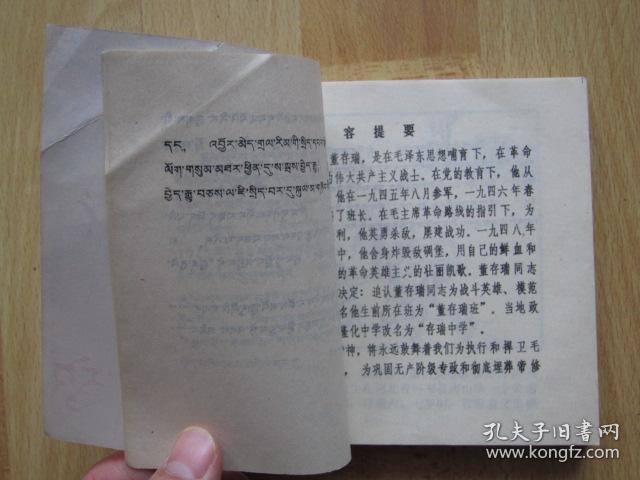 དང༌ འབྱོར་མེད་གྲལ་རིམ་གྱི་སྲིད་དབང
ལོག་གསུམ་མཐར་ཕྱིན་དུ་ས་སྦས་བྱེད་རྒྱུ
བྱེད་རྒྱུ་བཅས་ལ་ཇི་སྲིད་བར་དུ་སྐུལ་མ་
容提要
董存瑞，是在毛泽东思想哺育下，在革命
伟大共产主义战士。在党的教育下，他从
他在一九四五年八月参军，一九四六年春
了班长。在毛主席革命路线的指引下，为
利，他英勇杀敌，屡建战功。一九四八年
中，他舍身炸毁敌碉堡，用自己的鲜血和
的革命英雄主义的壮丽凯歌。董存瑞同志
决定：追认董存瑞同志为战斗英雄、模范
名他生前所在班为“董存瑞班”。当地政
隆化中学改名为“存瑞中学”。
神，将永远鼓舞着我们为执行和捍卫毛
，为巩固无产阶级专政和彻底埋葬帝修
孔夫子旧书网
www.kongfz.com